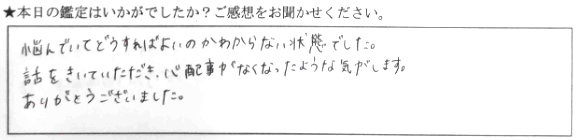 ★本日の鑑定はいかがでしたか?ご感想をお聞かせください。
悩んでいてどうすればよいのかわからない状態でした。
話をきいていただき、心配事がなくなったような気がします。
ありがとうございました。